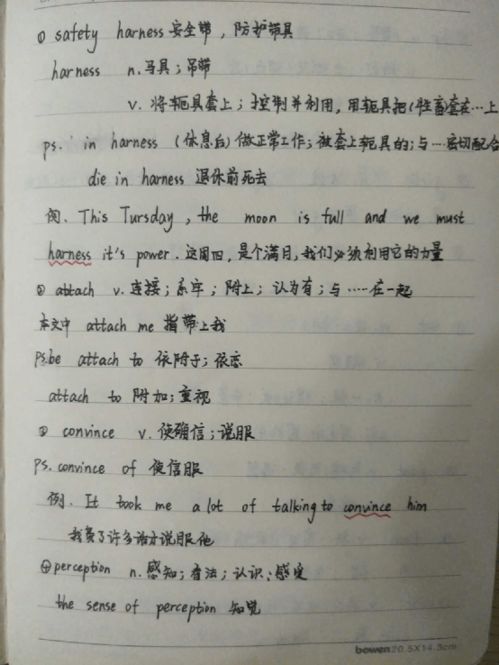 ① safety harness 安全带，防护带具
harness n.马具；吊带
v. 将轭具套上；控制并利用，用轭具把(牲畜套在…上
ps. in harness (休息后)做正常工作；被套上轭具的；与…密切配合
die in harness 退休前死去
例. This Tursday, the moon is full and we must
harness it's power. 这周四，是个满月，我们必须利用它的力量
② attach v. 连接；系牢；附上；认为有；与……在一起
本文中 attach me 指带上我
Ps.be attach to 依附于；依恋
attach to 附加；重视
③ convince v. 使确信；说服
PS. convince of 使信服
例. It took me a lot of talking to convince him
我费了许多话才说服他
④perception n. 感知；看法；认识；感受
the sense of perception 知觉
bowen20.5X14.3cm